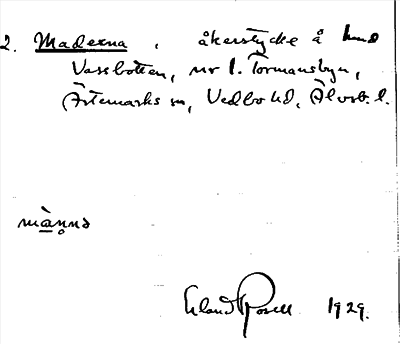 2. Maderna , åkerstycke å hmd
Vassbotten, nr 1. Tormansbyn,
Ärtemarks sn, Vedbo hd, Älvsb. l.
mànna
Erland Rosell 1929.